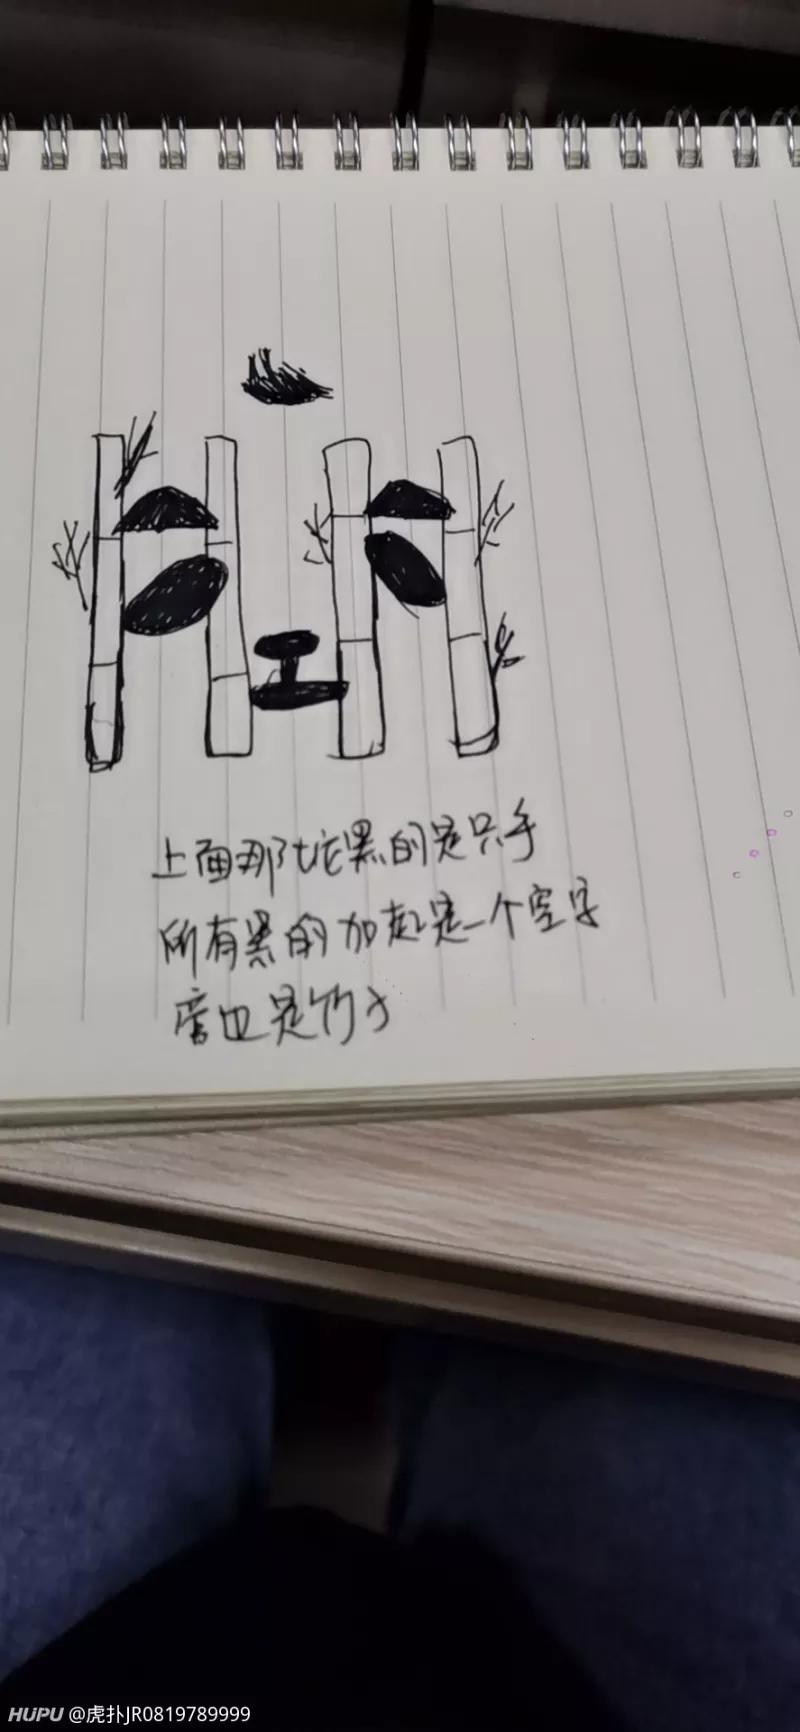 上面那坨黑的是只手
所有黑的加起是一个空字
也是竹子
HUPU @虎扑JR0819789999